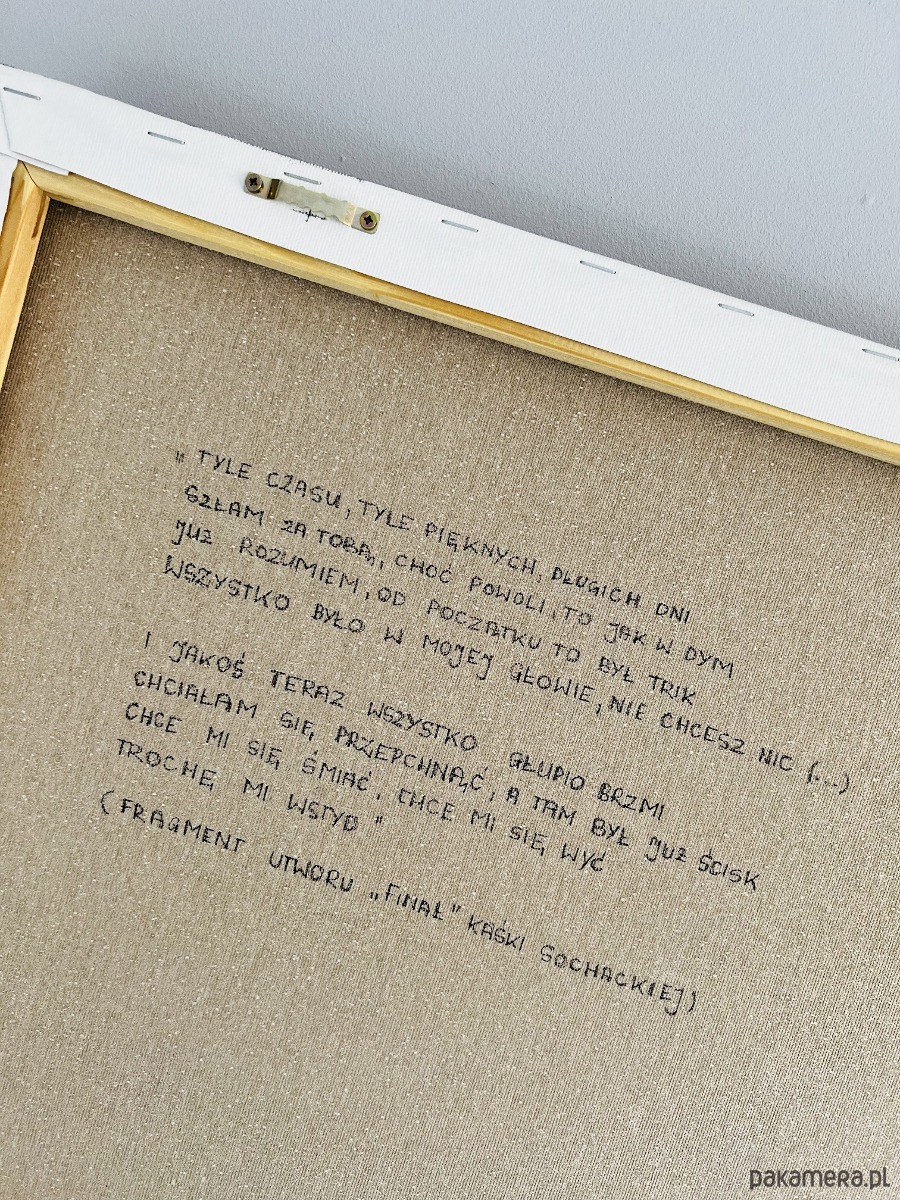 „TYLE CZASU, TYLE PIĘKNYCH, DŁUGICH DNI
SZŁAM ZA TOBĄ, CHOĆ POWOLI, TO JAK W DYM
JUŻ ROZUMIEM, OD POCZĄTKU TO BYŁ TRIK
WSZYSTKO BYŁO W MOJEJ GŁOWIE, NIE CHCESZ NIC (...)
I JAKOŚ TERAZ WSZYSTKO GŁUPIO BRZMI
CHCIAŁAM SIĘ PRZEPCHNĄĆ, A TAM BYŁ JUŻ ŚCISK
CHCE MI SIĘ ŚMIAĆ, CHCE MI SIĘ WYĆ
TROCHĘ MI WSTYD"
(FRAGMENT UTWORU „FINAŁ" KAŚKI SOCHACKIEJ)
pakamera.pl